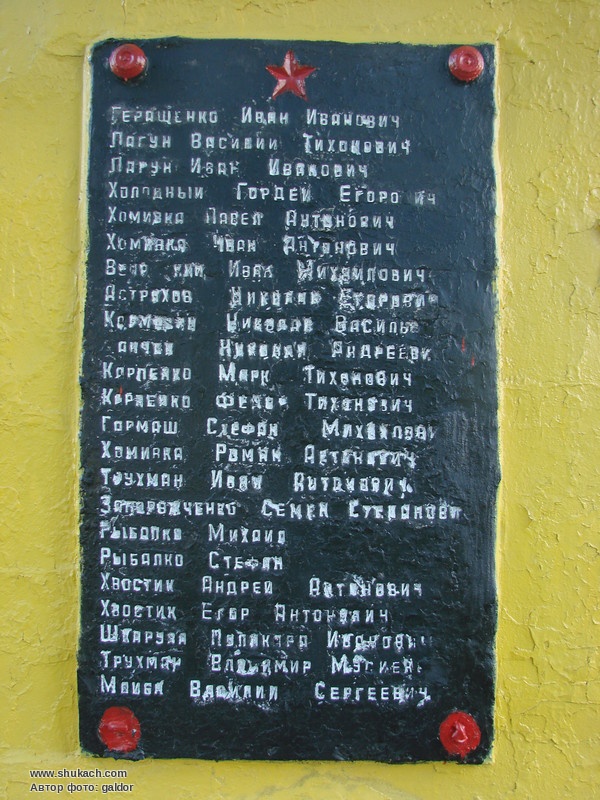 Геращенко Иван Иванович
Лагун Василий Тихонович
Лагун Иван Иванович
Холодный Гордей
Хомивка Павел Антонович
Хомивка Иван Антонович
Иван Михайлович
Астрахов Николай Егорович
Николай
Николай Андреевич
Карпенко Марк Тихонович
Карпенко Федор Тихонович
Гормаш Стефан
Хомивка Роман Антонович
Трухман Иван Антонович
Запорожченко Семен
Рыбалко Михаил
Рыбалко Стефан
Хвостик Андрей Антонович
Хвостик Егор Антонович
Иванович
Трухман Владимир
Василий Сергеевич
www.shukach.com
Автор фото: galdor